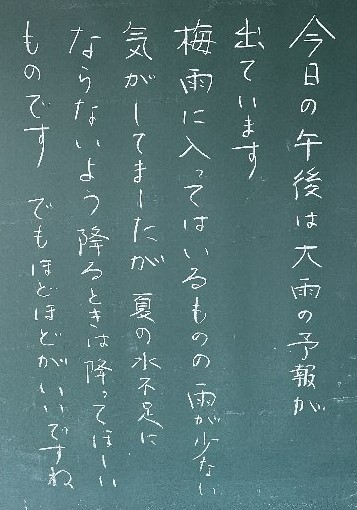 今日の午後は大雨の予報が
出ています
梅雨に入ってはいるものの 雨が少ない
気がしてましたが 夏の水不足に
ならないよう 降るときは降ってほしい
ものです でもほどほどがいいですね